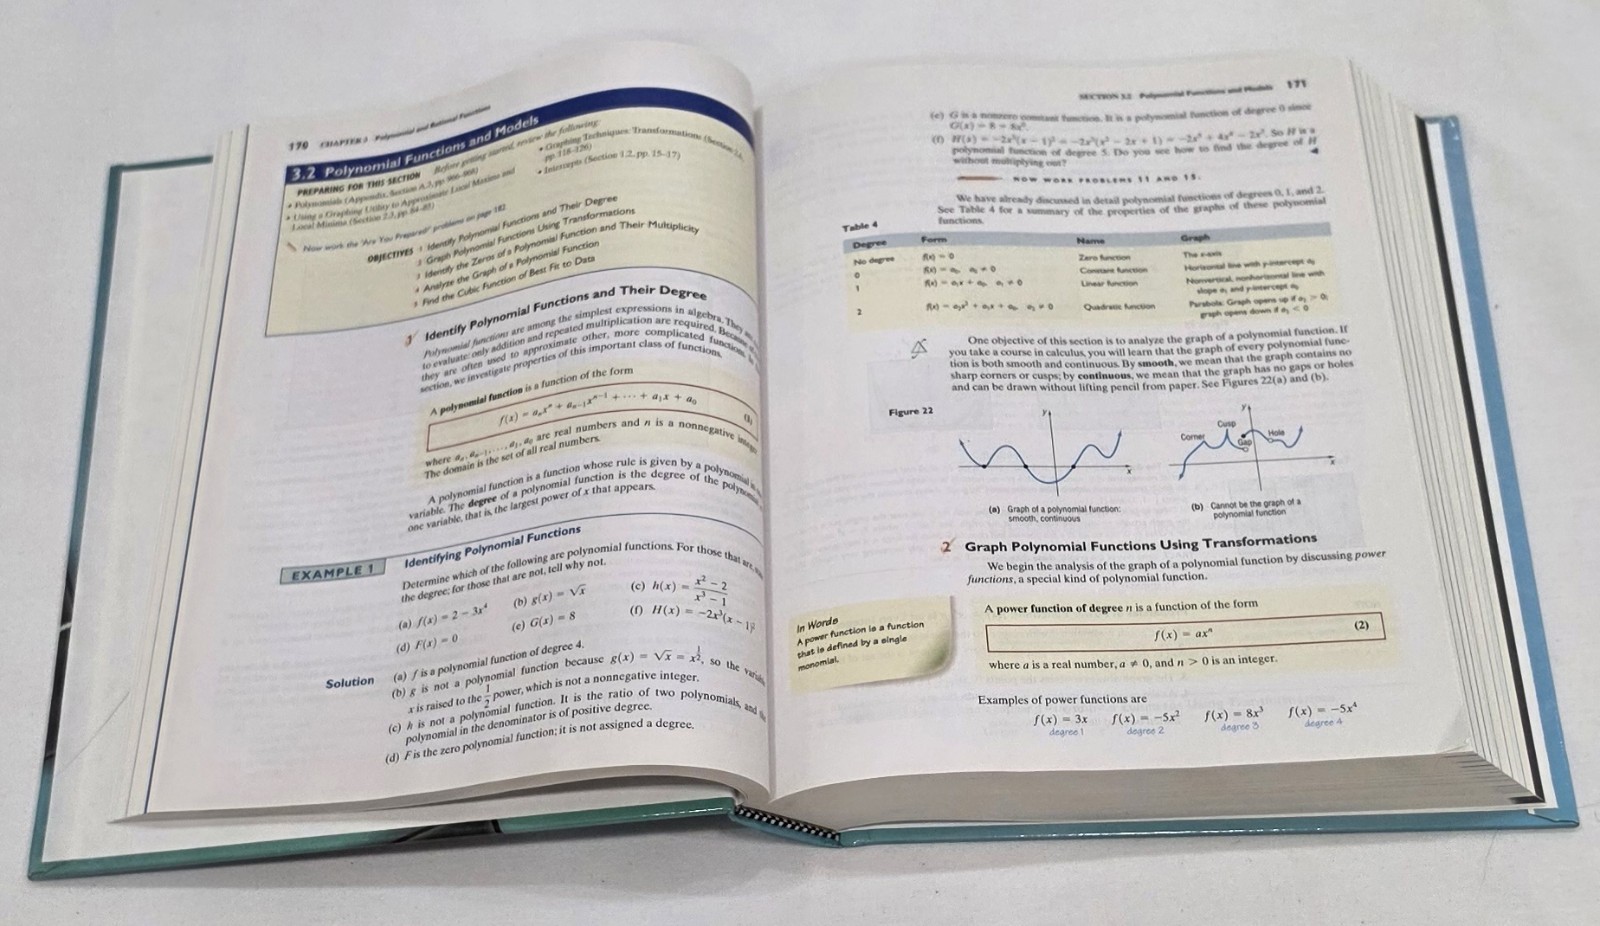 170 CHAPTER 3 Polynomial and Rational Functions
3.2 Polynomial Functions and Models
PREPARING FOR THIS SECTION Before getting started, review the following:
• Polynomials (Appendix, Section A.3, pp.
• Graphing Techniques: Transformations (Section
pp. 118–126)
• Using a Graphing Utility to Approximate Local Maxima and
Local Minima (Section 2.3, pp. 84–85)
• Intercepts (Section 1.2, pp. 15–17)
Now work the 'Are You Prepared?' problems on page 182.
OBJECTIVES 1 Identify Polynomial Functions and Their Degree
2 Graph Polynomial Functions Using Transformations
3 Identify the Zeros of a Polynomial Function and Their Multiplicity
4 Analyze the Graph of a Polynomial Function
5 Find the Cubic Function of Best Fit to Data
1 Identify Polynomial Functions and Their Degree
Polynomial functions are among the simplest expressions in algebra. They
to evaluate: only addition and repeated multiplication are required. Because
they are often used to approximate other, more complicated functions.
section, we investigate properties of this important class of functions.
A polynomial function is a function of the form
f(x) = aₙxⁿ + aₙ₋₁xⁿ⁻¹ + ··· + a₁x + a₀ (1)
where aₙ, aₙ₋₁, ..., a₁, a₀ are real numbers and n is a nonnegative integer.
The domain is the set of all real numbers.
A polynomial function is a function whose rule is given by a polynomial in
variable. The degree of a polynomial function is the degree of the
one variable, that is, the largest power of x that appears.
EXAMPLE 1 Identifying Polynomial Functions
Determine which of the following are polynomial functions. For those that are,
the degree; for those that are not, tell why not.
(a) f(x) = 2 − 3x⁴ (b) g(x) = √x (c) h(x) = (x² − 2)/(x³ − 1)
(d) F(x) = 0 (e) G(x) = 8 (f) H(x) = −2x³(x − 1)²
Solution (a) f is a polynomial function of degree 4.
(b) g is not a polynomial function because g(x) = √x = x^(1/2), so the variable
x is raised to the 1/2 power, which is not a nonnegative integer.
(c) h is not a polynomial function. It is the ratio of two polynomials, and the
polynomial in the denominator is of positive degree.
(d) F is the zero polynomial function; it is not assigned a degree.
SECTION 3.2 Polynomial Functions and Models 171
(e) G is a nonzero constant function. It is a polynomial function of degree 0 since
G(x) = 8 = 8x⁰.
(f) H(x) = −2x³(x − 1)² = −2x³(x² − 2x + 1) = −2x⁵ + 4x⁴ − 2x³. So H is a
polynomial function of degree 5. Do you see how to find the degree of H
without multiplying out?
NOW WORK PROBLEMS 11 AND 15.
We have already discussed in detail polynomial functions of degrees 0, 1, and 2.
See Table 4 for a summary of the properties of the graphs of these polynomial
functions.
Table 4
Degree Form Name Graph
No degree f(x) = 0 Zero function The x-axis
0 f(x) = a₀, a₀ ≠ 0 Constant function Horizontal line with y-intercept a₀
1 f(x) = a₁x + a₀, a₁ ≠ 0 Linear function Nonvertical, nonhorizontal line with
slope a₁ and y-intercept a₀
2 f(x) = a₂x² + a₁x + a₀, a₂ ≠ 0 Quadratic function Parabola: Graph opens up if a₂ > 0;
graph opens down if a₂ < 0
One objective of this section is to analyze the graph of a polynomial function. If
you take a course in calculus, you will learn that the graph of every polynomial func-
tion is both smooth and continuous. By smooth, we mean that the graph contains no
sharp corners or cusps; by continuous, we mean that the graph has no gaps or holes
and can be drawn without lifting pencil from paper. See Figures 22(a) and (b).
Figure 22
y
x
y
Corner
Cusp
Gap
Hole
x
(a) Graph of a polynomial function:
smooth, continuous
(b) Cannot be the graph of a
polynomial function
2 Graph Polynomial Functions Using Transformations
We begin the analysis of the graph of a polynomial function by discussing power
functions, a special kind of polynomial function.
In Words
A power function is a function
that is defined by a single
monomial.
A power function of degree n is a function of the form
f(x) = axⁿ (2)
where a is a real number, a ≠ 0, and n > 0 is an integer.
Examples of power functions are
f(x) = 3x f(x) = −5x² f(x) = 8x³ f(x) = −5x⁴
degree 1 degree 2 degree 3 degree 4